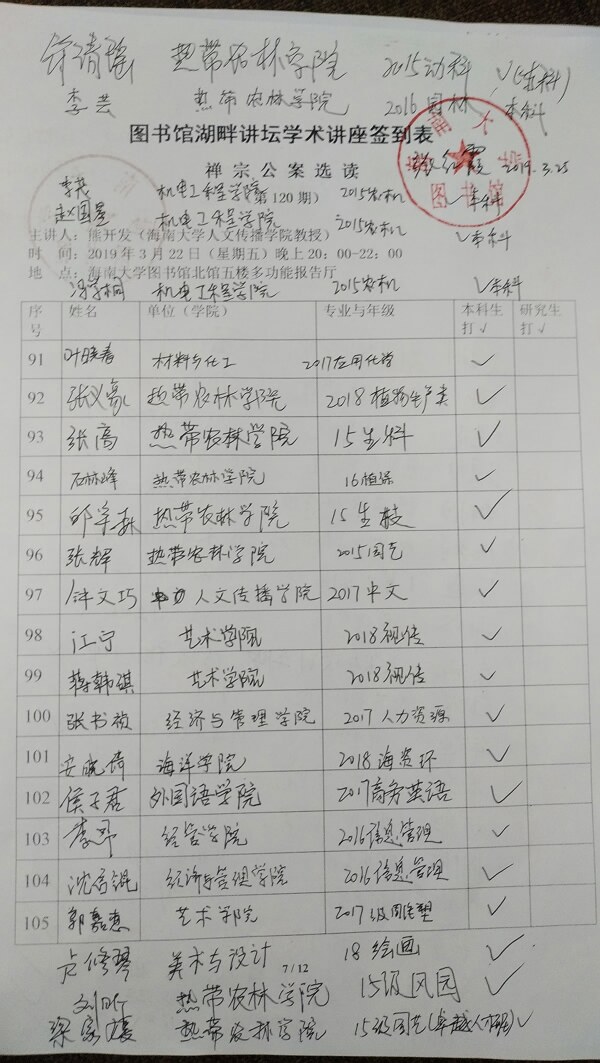 徐清瑶 热带农林学院 2015动科 ✓(本科)
李芸 热带农林学院 2016园林 本科
图书馆湖畔讲坛学术讲座签到表
禅宗公案选读 张红霞 2019.3.25
海南大学 图书馆
李茂 机电工程学院 (第120期) 2015农机 ✓本科
赵国星 机电工程学院 2015农机 ✓本科
主讲人：熊开发（海南大学人文传播学院教授）
时 间：2019年3月22日（星期五）晚上20：00-22：00
地 点：海南大学图书馆北馆五楼多功能报告厅
冯学桐 机电工程学院 2015农机 ✓本科
序号 姓名 单位（学院） 专业与年级 本科生打√ 研究生打√
91 叶晓春 材料与化工 2017应用化学 ✓
92 张义豪 热带农林学院 2018植物生产类 ✓
93 张高 热带农林学院 15生科 ✓
94 石林峰 热带农林学院 16植保 ✓
95 邱宇森 热带农林学院 15生技 ✓
96 张辉 热带农林学院 2015园艺 ✓
97 钟文巧 人文传播学院 2017中文 ✓
98 江宁 艺术学院 2018视传 ✓
99 蒋韩祺 艺术学院 2018视传 ✓
100 张书祯 经济与管理学院 2017人力资源 ✓
101 安 海洋学院 2018海资环 ✓
102 侯子君 外国语学院 2017商务英语 ✓
103 李 经管学院 2016信息管理 ✓
104 沈名锟 经济与管理学院 2016信息管理 ✓
105 郭嘉惠 艺术学院 2017级 ✓
卢修琴 美术与设计 18绘画 ✓
7/12
刘昕 热带农林学院 15级风园 ✓
梁家媛 热带农林学院 15级园艺(卓越人才班) ✓